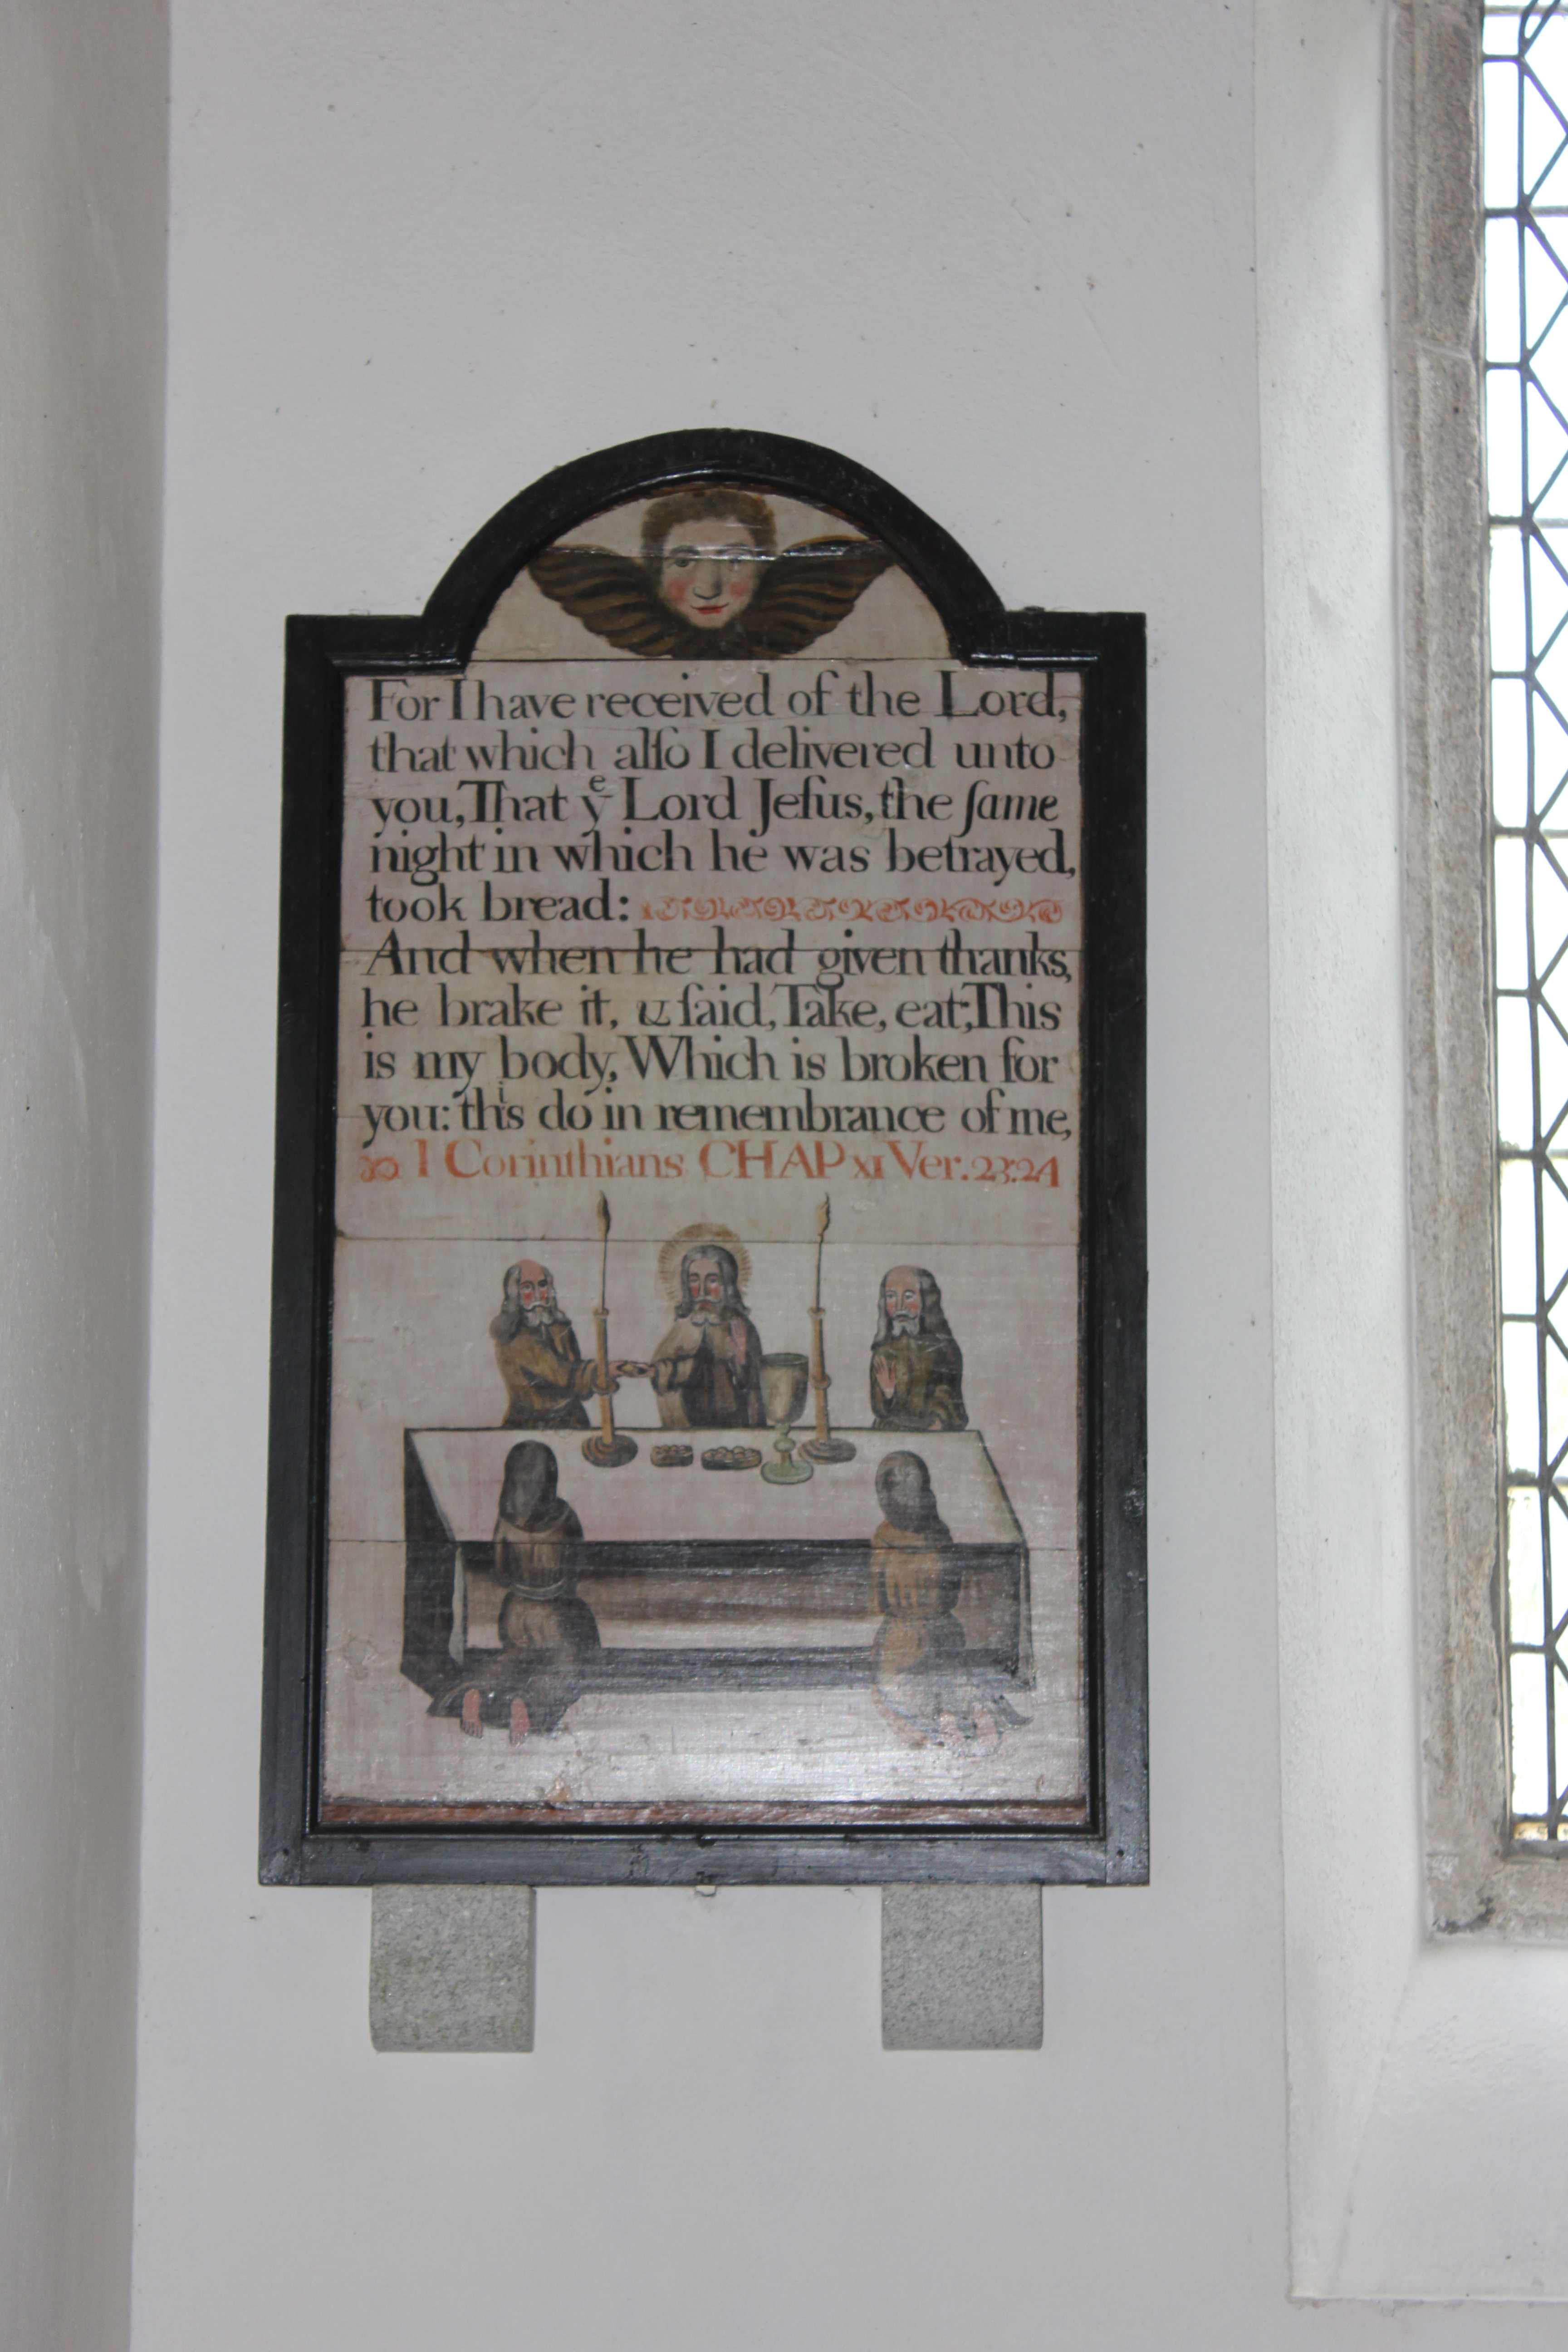 For I have received of the Lord,
that which alſo I delivered unto
you, That yͤ Lord Jeſus, the ſame
night in which he was betrayed,
took bread:
And when he had given thanks,
he brake it, & ſaid, Take, eat; This
is my body, Which is broken for
you: this do in remembrance of me,
1 Corinthians CHAP XI Ver. 23:24